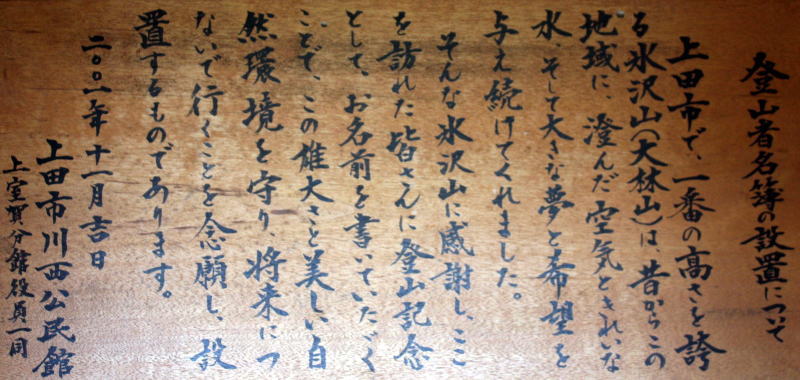 登山者名簿の設置について
上田市で、一番の高さを誇
る氷沢山(大林山)は、昔からこの
地域に、澄んだ空気ときれいな
水、そして大きな夢と希望を
与え続けてくれました。
そんな氷沢山に感謝し、ここ
を訪れた皆さんに登山記念
として、お名前を書いていただく
ことで、この雄大さと美しい自
然環境を守り、将来につ
ないで行くことを念願し、設
置するものであります。
二〇〇一年十一月吉日
上田市川西公民館
上室賀分館役員一同